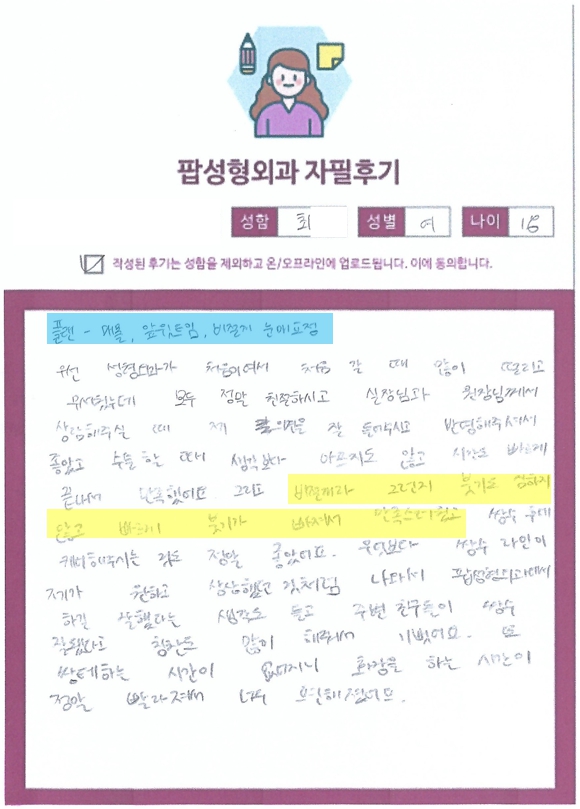 팝성형외과 자필후기
성함 최 성별 여 나이 18
작성된 후기는 성함을 제외하고 온/오프라인에 업로드됩니다. 이에 동의합니다.
플랜 - 매몰, 앞윗트임, 비절개 눈매교정
우선 성형외과가 처음이여서 처음 갈 때 많이 떨리고
무서웠는데 모두 정말 친절하시고 실장님과 원장님께서
상담해주실 때 제 의견을 잘 들어주시고 반영해주셔서
좋았고 수술 할 때 생각보다 아프지도 않고 시간도 빠르게
끝나서 만족했어요 그리고 비절개라 그런지 붓기도 심하지
않고 빠르게 붓기가 빠져서 만족스러웠고 쌍수 후에
케어해주시는 것도 정말 좋았어요. 무엇보다 쌍수 라인이
제가 원하고 상상했던 것처럼 나와서 팝성형외과에서
하길 잘했다는 생각도 들고 주변 친구들이 쌍수
잘됐다고 칭찬도 많이 해줘서 기뻤어요. 또
쌍테하는 시간이 없어지니 화장을 하는 시간이
정말 빨라져서 너무 편해졌어요.